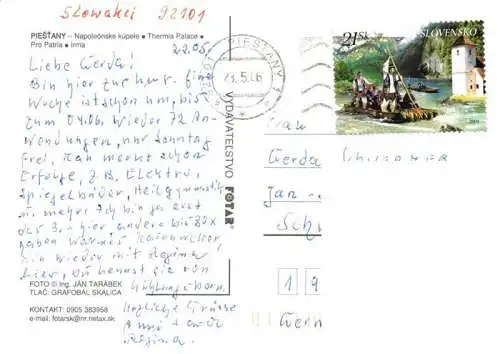 Slowakei 92101
PIEŠŤANY — Napoleónske kúpele ● Thermia Palace ●
Pro Patria ● Irma
22.05.
Liebe Gerda!
Bin hier zur Kur. Eine
Woche ist schon um, bis
zum 04.06. wieder 12 An-
wendungen, nur Sonntag
frei. Kann merkt schon
Erfolge, z.B. Elektro,
Spiegelbäder, Heilgymnastik
u. mehr. Ich bin ja erst
das 3. x hier andere bis 30x
haben warmes
bin wieder mit Regina
hier, du kennst sie von
Herzliche Grüsse
Anni + auch
Regina.
FOTO © Ing. JÁN TARÁBEK
TLAČ: GRAFOBAL SKALICA
KONTAKT: 0905 383958
e-mail: fotarsk@nr.netax.sk
VYDAVATEĽSTVO FOTAR
PIEŠŤANY 1
21Sk
SLOVENSKO
Frau
Gerda
Jan-
Sch
1 9
Gern